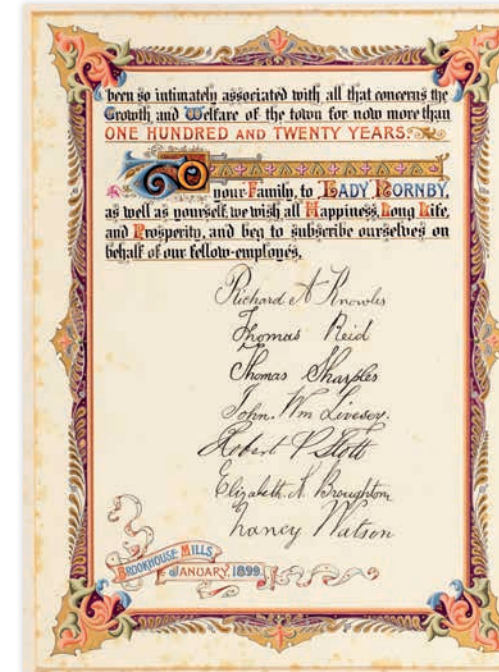 been so intimately associated with all that concerns the
Growth and Welfare of the town for now more than
ONE HUNDRED AND TWENTY YEARS.
TO
your Family, to LADY HORNBY,
as well as yourself, we wish all Happiness, Long Life,
and Prosperity, and beg to subscribe ourselves on
behalf of our fellow-employés,
Richard A Knowles
Thomas Reid
Thomas Sharples
John. Wm Livesey.
Robert P Stott
Elizabeth. A. Broughton
Nancy Watson
BROOKHOUSE MILLS,
JANUARY, 1899.